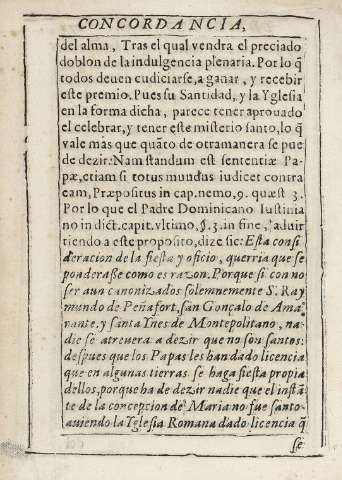 CONCORDANCIA,
del alma, Tras el qual vendra el preciado
doblon de la indulgencia plenaria. Por lo q̃
todos deuen cudiciarse, a ganar, y recebir
este premio. Pues su Santidad, y la Yglesia
en la forma dicha, parece tener aprouado
el celebrar, y tener este misterio santo, lo q̃
vale más que quãto de otra manera se pue
de dezir: Nam standum est sententiæ Pa-
pæ, etiam si totus mundus iudicet contra
eam, Præpositus in cap. nemo, 9. quæst 3.
Por lo que el Padre Dominicano Iustinia
no in dict. capit. vltimo, §. 3. in fine, aduir
tiendo a este proposito, dize sic: Esta consi
deracion de la fiesta y oficio, querria que se
ponderasse como es razon. Porque si con no
ser aun canonizados solemnemente S. Ray
mundo de Peñafort, san Gonçalo de Ama
rante, y santa Ines de Montepolitano, na-
die se atreuera a dezir que no son santos:
despues que los Papas les han dado licencia
que en algunas tierras se haga fiesta propia
dellos, porque ha de dezir nadie que el instã
te de la concepcion de Maria no fue santo-
auiendo la Yglesia Romana dado licencia q̃
se